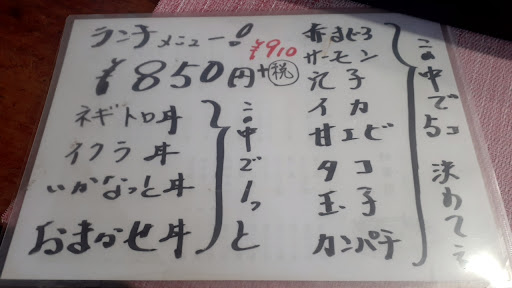 ランチメニュー!
¥910
¥850円+税
ネギトロ丼
イクラ丼
いかなっと丼
おまかせ丼
この中で1つと
赤まぐろ
サーモン
穴子
イカ
甘エビ
タコ
玉子
カンパチ
この中で5コ 決めて